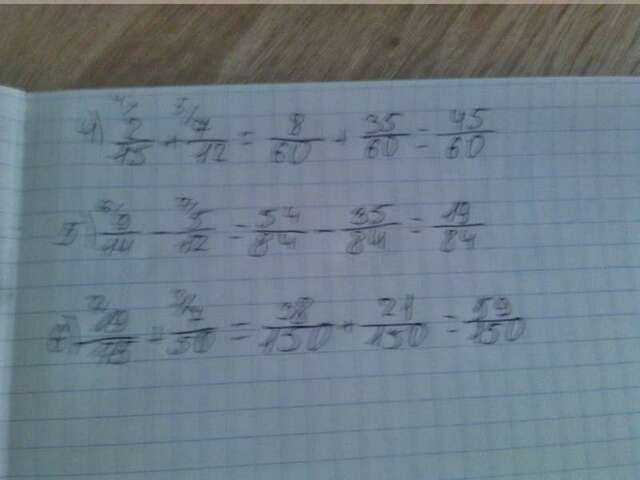 4) 4/ 2/15 + 5/ 7/12 = 8/60 + 35/60 = 45/60
5) 6/ 9/14 - 7/ 5/12 = 54/84 - 35/84 = 19/84
6) 2/ 19/75 + 3/ 7/50 = 38/150 + 21/150 = 59/150